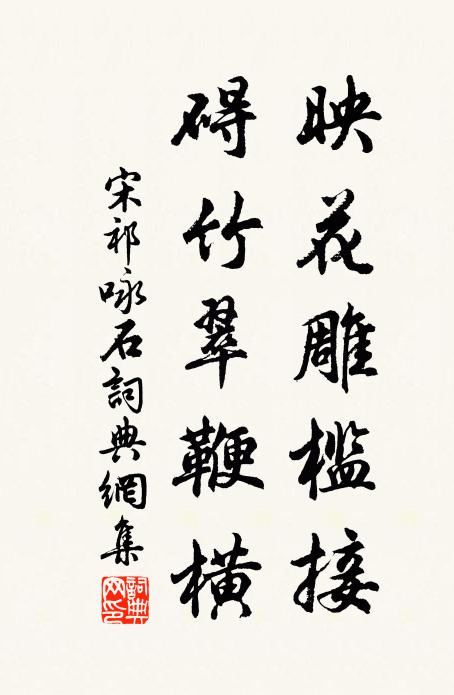 映花雕檻接
碍竹翠鞭橫
宋祁咏石詞典網集
詞典網印